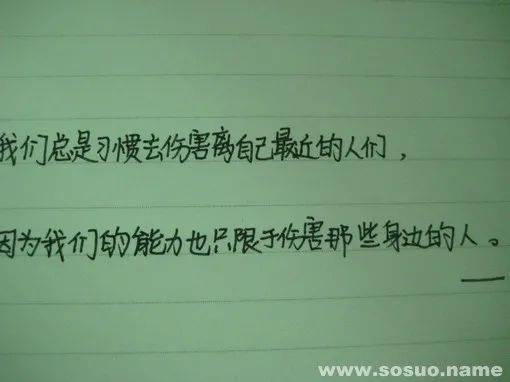 我们总是习惯去伤害离自己最近的人们，
因为我们的能力也只限于伤害那些身边的人。
www.sosuo.name